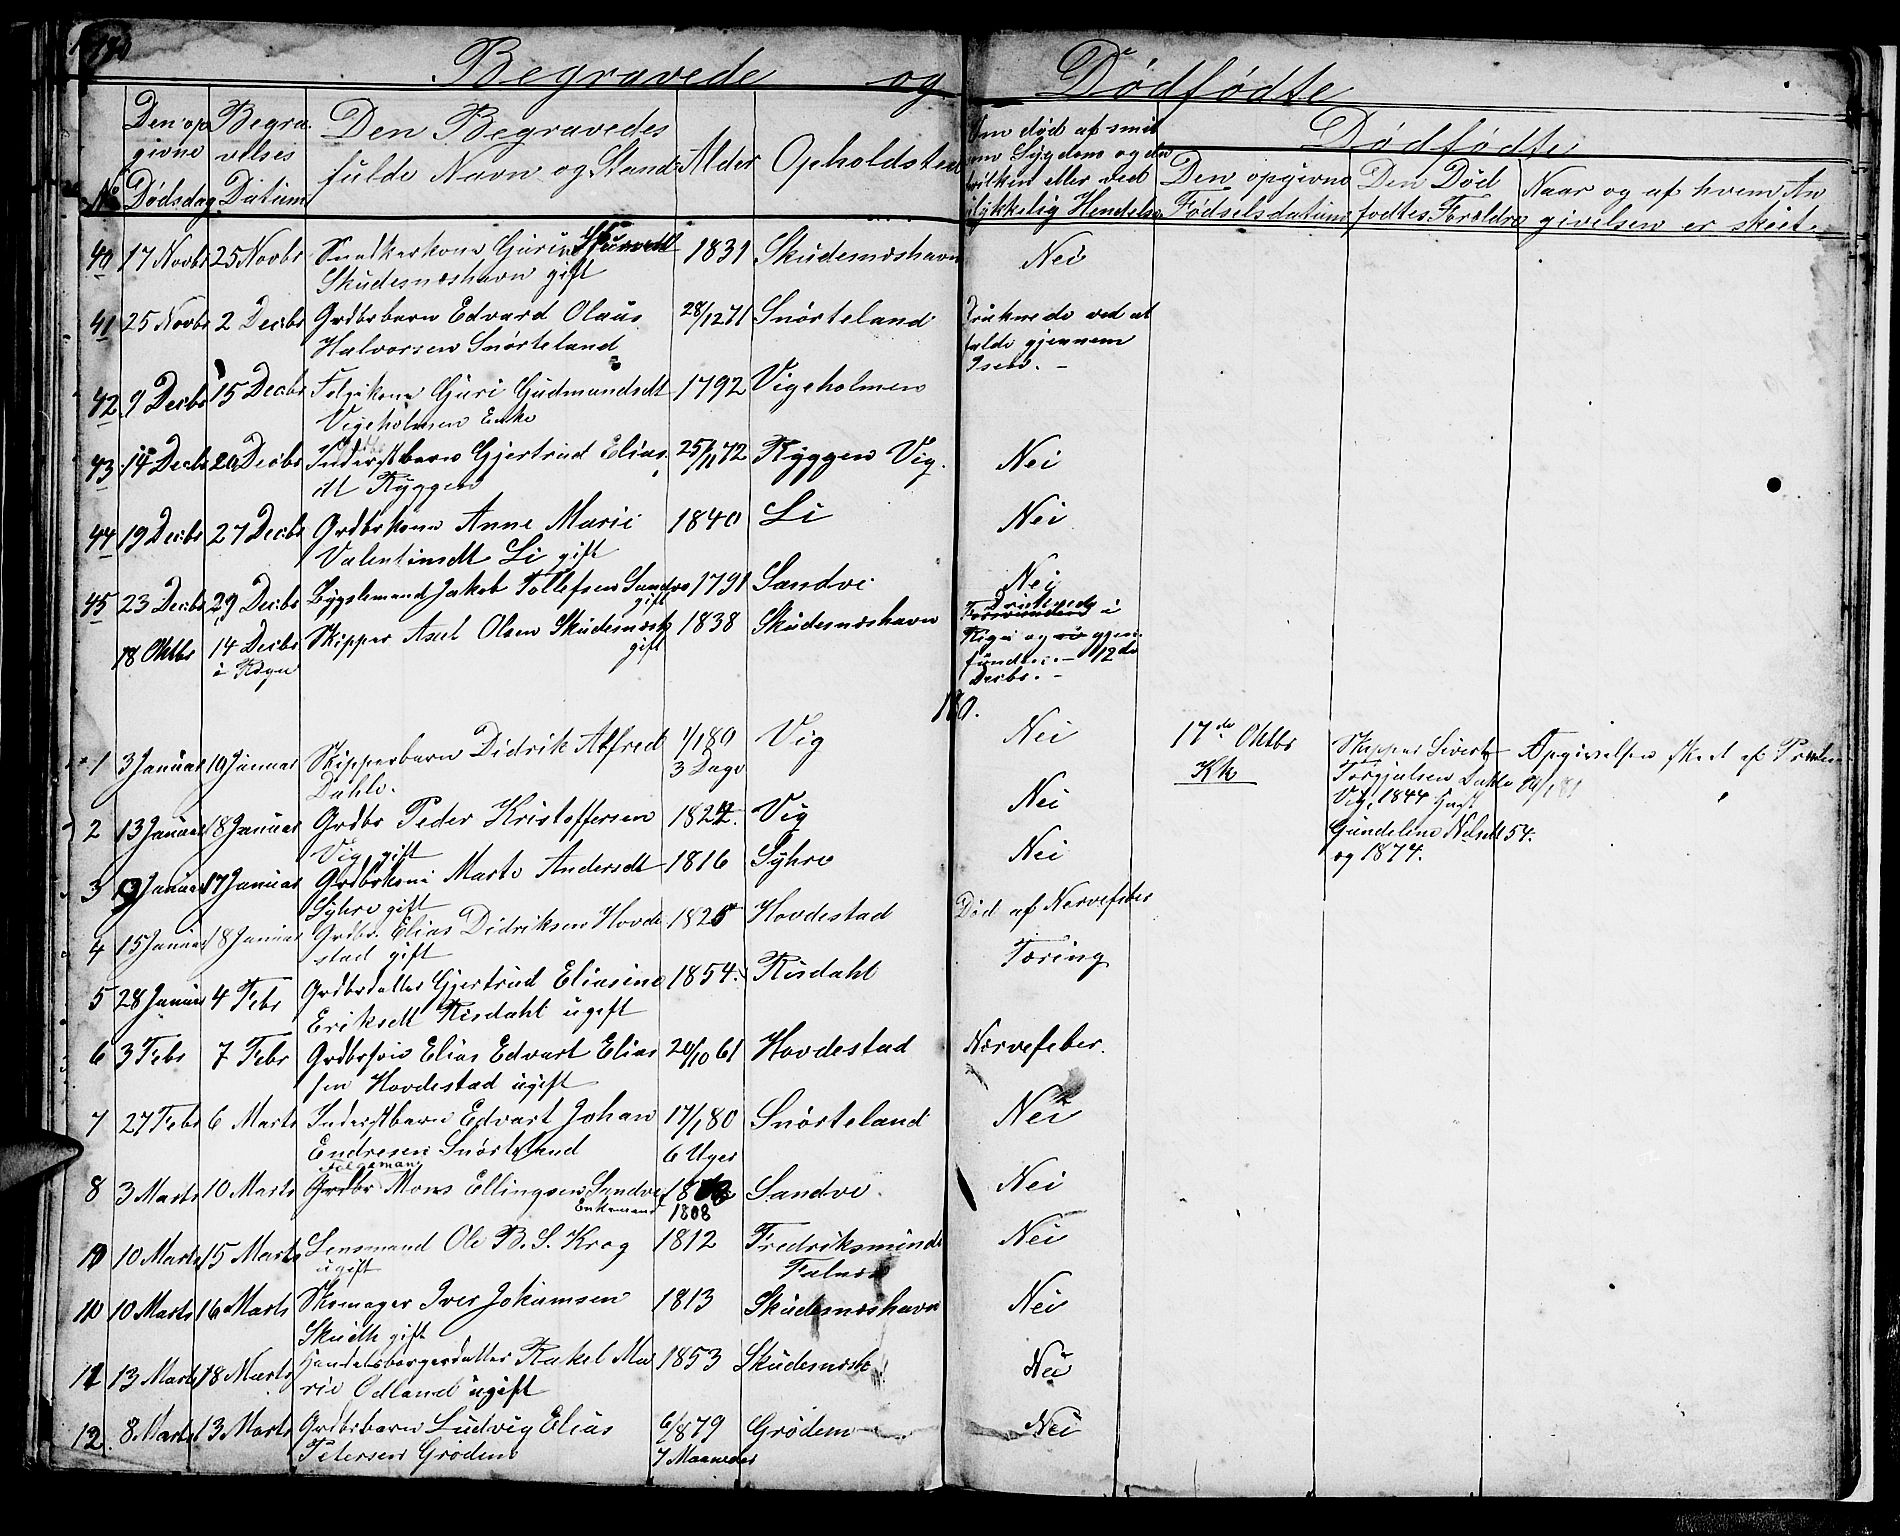 Begravede og Dødfødte
No
Den op
givne
Dødsdag
Begra
velses
Datum
Den Begravedes
fulde Navn og Stand
Alder
Opholdsted
Om død af smit
som Sygdom og da
hvilken eller ved
ulykkelig Hendelse
Dødfødte
Den opgivne
Fødselsdatum
Den Død
fødtes Forældre
Naar og af hvem An
givelsen er skeet.
40 17 Novbr 25 Novbr Snedkerkone Guri 1831 Skudesneshavn Nei
Skudesneshavn gift
41 25 Novbr 2 Decbr Grdbrbarn Edvard Olaus 28/12 71 Snørteland Druknede ved at
Halvorsen Snørteland falde gjennem
Isen. -
42 9 Decbr 15 Decbr Folgekone Guri Gudmundsdt 1792 Vigeholmen
Vigeholmen Enke
43 14 Decbr 20 Decbr Inderstbarn Gjertrud Elias 25/11 72 Ryggen Vig. Nei
dt Ryggen
44 19 Decbr 27 Decbr Grdbrkone Anne Marie 1840 Li Nei
Valentinsdt Li gift
45 23 Decbr 29 Decbr Bygslemand Jakob Tollefsen Sandve 1791 Sandve Nei
gift
18 Oktbr 14 Decbr Skipper Axel Olsen Skudesnesh 1838 Skudesneshavn Druknede
i
gift
funden. - 12de
Decbr. -
180.
1 3 Januar 10 Januar Skipperbarn Didrik Alfred 1/1 80 Vig Nei 17de Oktbr Skipper Sivert Angivelsen skeet af
Dahle. 3 Dage Kk Torgjulsen Dahle
Vig, 1844
2 13 Januar 18 Januar Grdbr Peder Kristoffersen 1824. Vig Nei Gundeline Nilsdt 54.
Vig gift og 1874.
3 9 Januar 17 Januar Grdbrkone Marte Andersdt 1816 Syhre Nei
Syhre gift
4 15 Januar 18 Januar Grdbr. Elias Didriksen Hovde 1825 Hovdestad Død af Nervefeber
stad gift
5 28 Januar 4 Febr Grdbrdatter Gjertrud Eliasine 1854. Risdahl Tæring
Eriksdt Risdahl ugift
6 3 Febr 7 Febr Grdbrsøn Elias Edvart Elias 20/10 61 Hovdestad Nervefeber.
sen Hovdestad ugift
7 27 Febr 6 Marts Inderstbarn Edvart Johan 17/1 80 Snørteland Nei
Endresen Snørteland 6 Uger
Folgemand
8 3 Marts 10 Marts Grdbr Mons Ellingsen Sandve Sandve Nei
Enkemand 1808
10 Marts 15 Marts Lensmand Ole B. S. Krog 1812 Fredriksminde Nei
ugift Falnes
10 10 Marts 16 Marts Skomager Iver Jokumsen 1813 Skudesneshavn Nei
Skudh gift
11 13 Marts 18 Marts Handelsborgerdatter Rakel Ma 1853 Skudesnesh Nei
rie Odland ugift
12. 8 Marts 13 Marts Grdbrbarn Ludvig Elias 6/8 79 Grødem Nei
Petersen Grødem 7 Maaneder